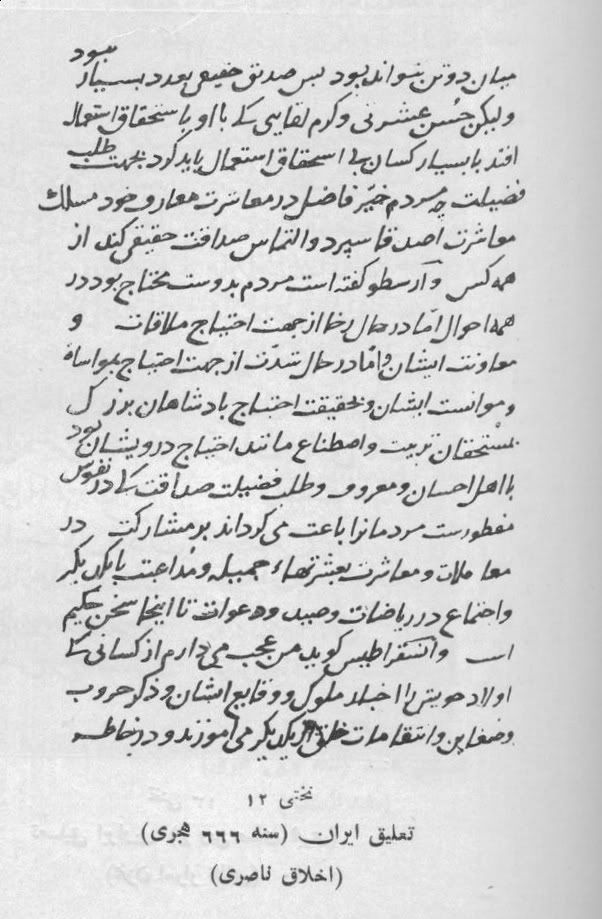 میان دو تن نتواند بود پس صدیق حقیقی بعدد بسیار نبود
ولیکن حسن عشرتی و کرم لقایی که با او باستحقاق استعمال
افتد با بسیار کسان بی استحقاق استعمال باید کرد بجهت طلب
فضیلت چه مردم خیّر فاضل در معاشرت معارف خود مسلک
معاشرت اصدقا سپرد و التماس صداقت حقیقی کند از
همه کس و ارسطو گفته است مردم بدوست محتاج بود در
همه احوال امّا در حال رخا از جهت احتیاج ملاقات و
معاونت ایشان و امّا در حال شدّت از جهت احتیاج بمواساة
و موانست ایشان و بحقیقت احتیاج بادشاهان بزرگ
بمستحقان تربیت و اصطناع مانند احتیاج درویشان بود
با اهل احسان و معروف و طلب فضیلت صداقت که در نفوس
مفطورست مردمانرا باعث می کرداند بر مشارکت در
معاملات و معاشرت بعشرتهاء جمیله و مداعبت با یکدیکر
و اجتماع در ریاضات و صید و دعوات تا اینجا سخن حکیم
است و انسقراطیس کوید من عجب می دارم از کسانی که
اولاد خویش را اخبار ملوک و وقایع ایشان و ذکر حروب
و ضغاین و انتقامات خلق از یکدیکر می آموزند و در خاطر
تختی ۱۲
تعلیق ایران (سنه ۶۶۶ هجری)
(اخلاق ناصری)